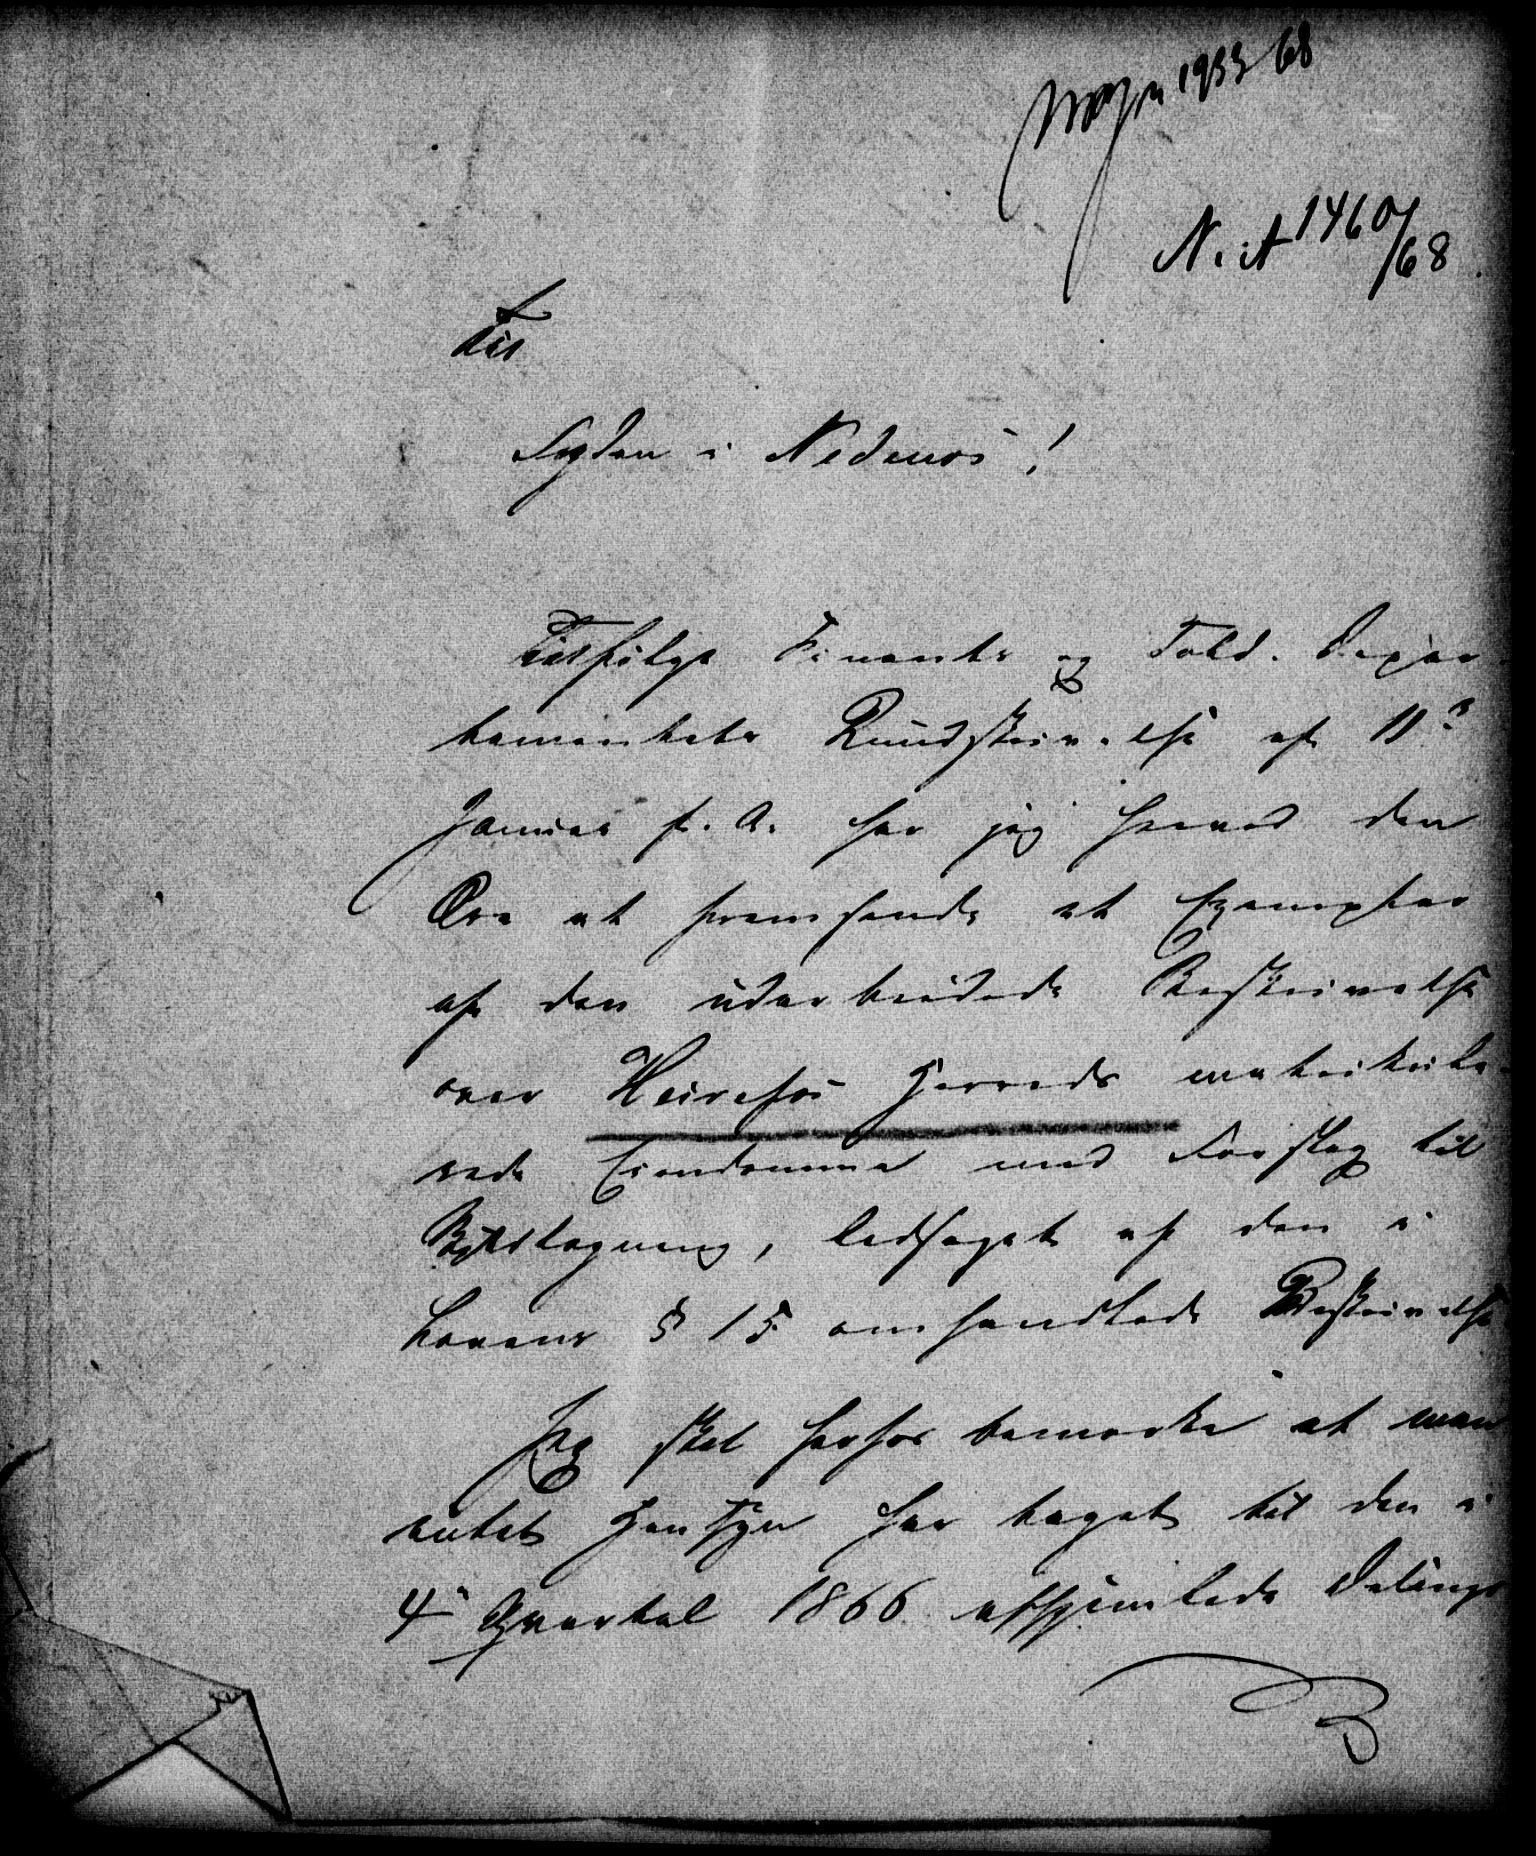 1933 68
N. A 1460/68
Til
Fogden i Nedenæs!
Ifølge Finants og Told. Depar-
tementets Rundskrivelse af 11te
Januar f. A. har jeg herved den
Ære at fremsende et Exemplar
af den udarbeidede Beskrivelse
over Herefos Herreds matrikule-
rede Eiendomme med Forslag til
ledsaget af den i
Lovens § 15 omhandlede Beskrivelse.
Jeg skal herhos bemærke at man
intet Hensyn har taget til den i
4de Qvartal 1866 Delings